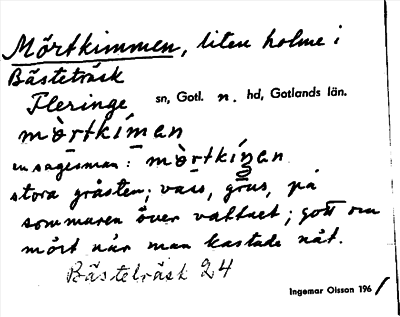 Mörtkimmen, liten holme i
Bästeträsk
Fleringe sn, Gotl. n. hd, Gotlands län.
mòrtkíman
en sagesman: mòrtkíman
stora gråsten; vass, grus, på
sommaren över vattnet; gott om
mört när man kastade nät.
Bästeträsk 24
Ingemar Olsson 1961